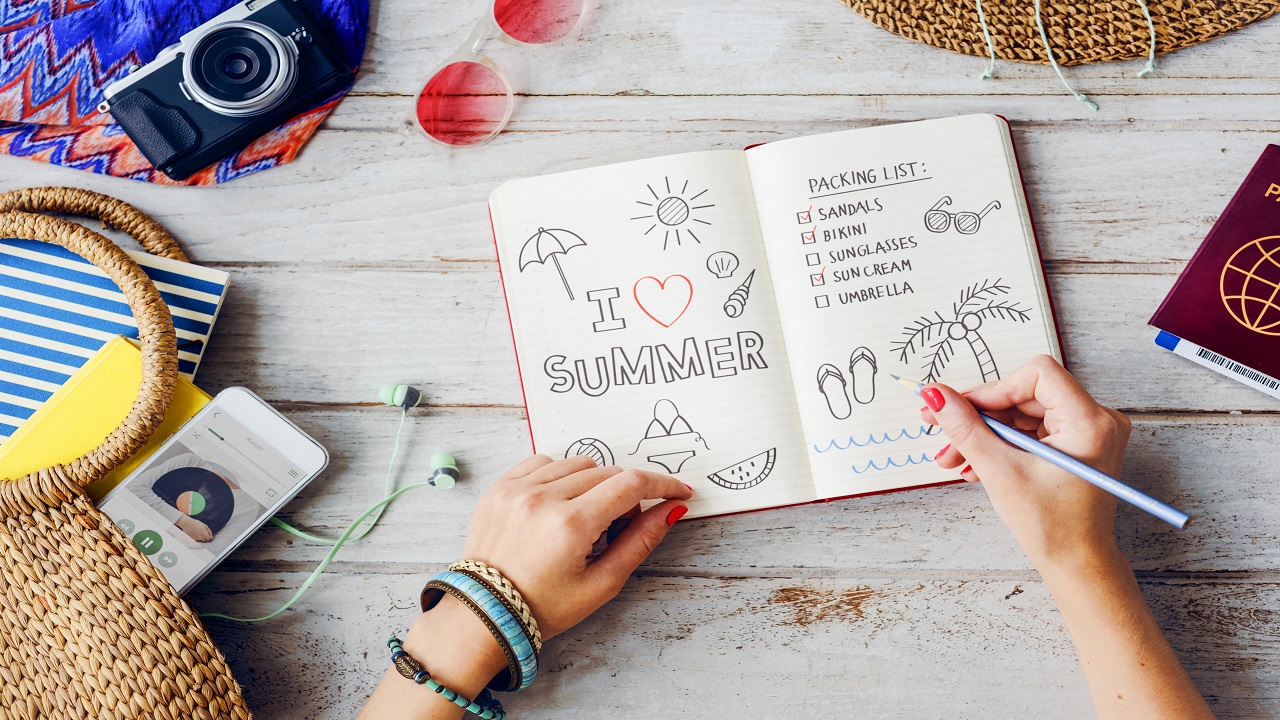 I
SUMMER
PACKING LIST:
SANDALS
BIKINI
SUNGLASSES
SUN CREAM
UMBRELLA